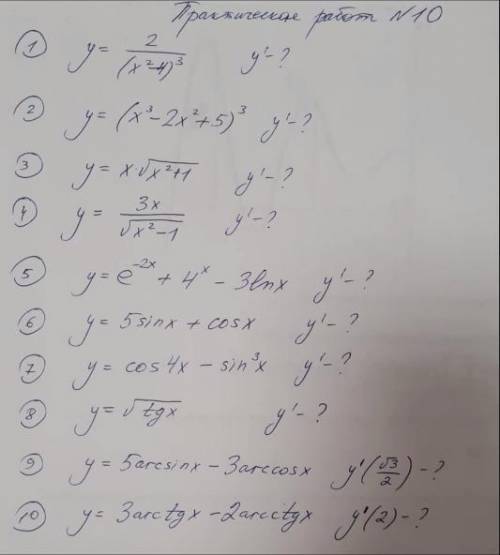 Практическая работ N10
① y = 2/(x²-4)³ y'-?
② y = (x³-2x²+5)³ y'-?
③ y = x·√(x²+1) y'-?
④ y = 3x/√(x²-1) y'-?
⑤ y = e⁻²ˣ + 4ˣ - 3lnx y'-?
⑥ y = 5sinx + cosx y'-?
⑦ y = cos4x - sin³x y'-?
⑧ y = √(tgx) y'-?
⑨ y = 5arcsinx - 3arccosx y'(√3/2)-?
⑩ y = 3arctgx - 2arcctgx y'(2)-?